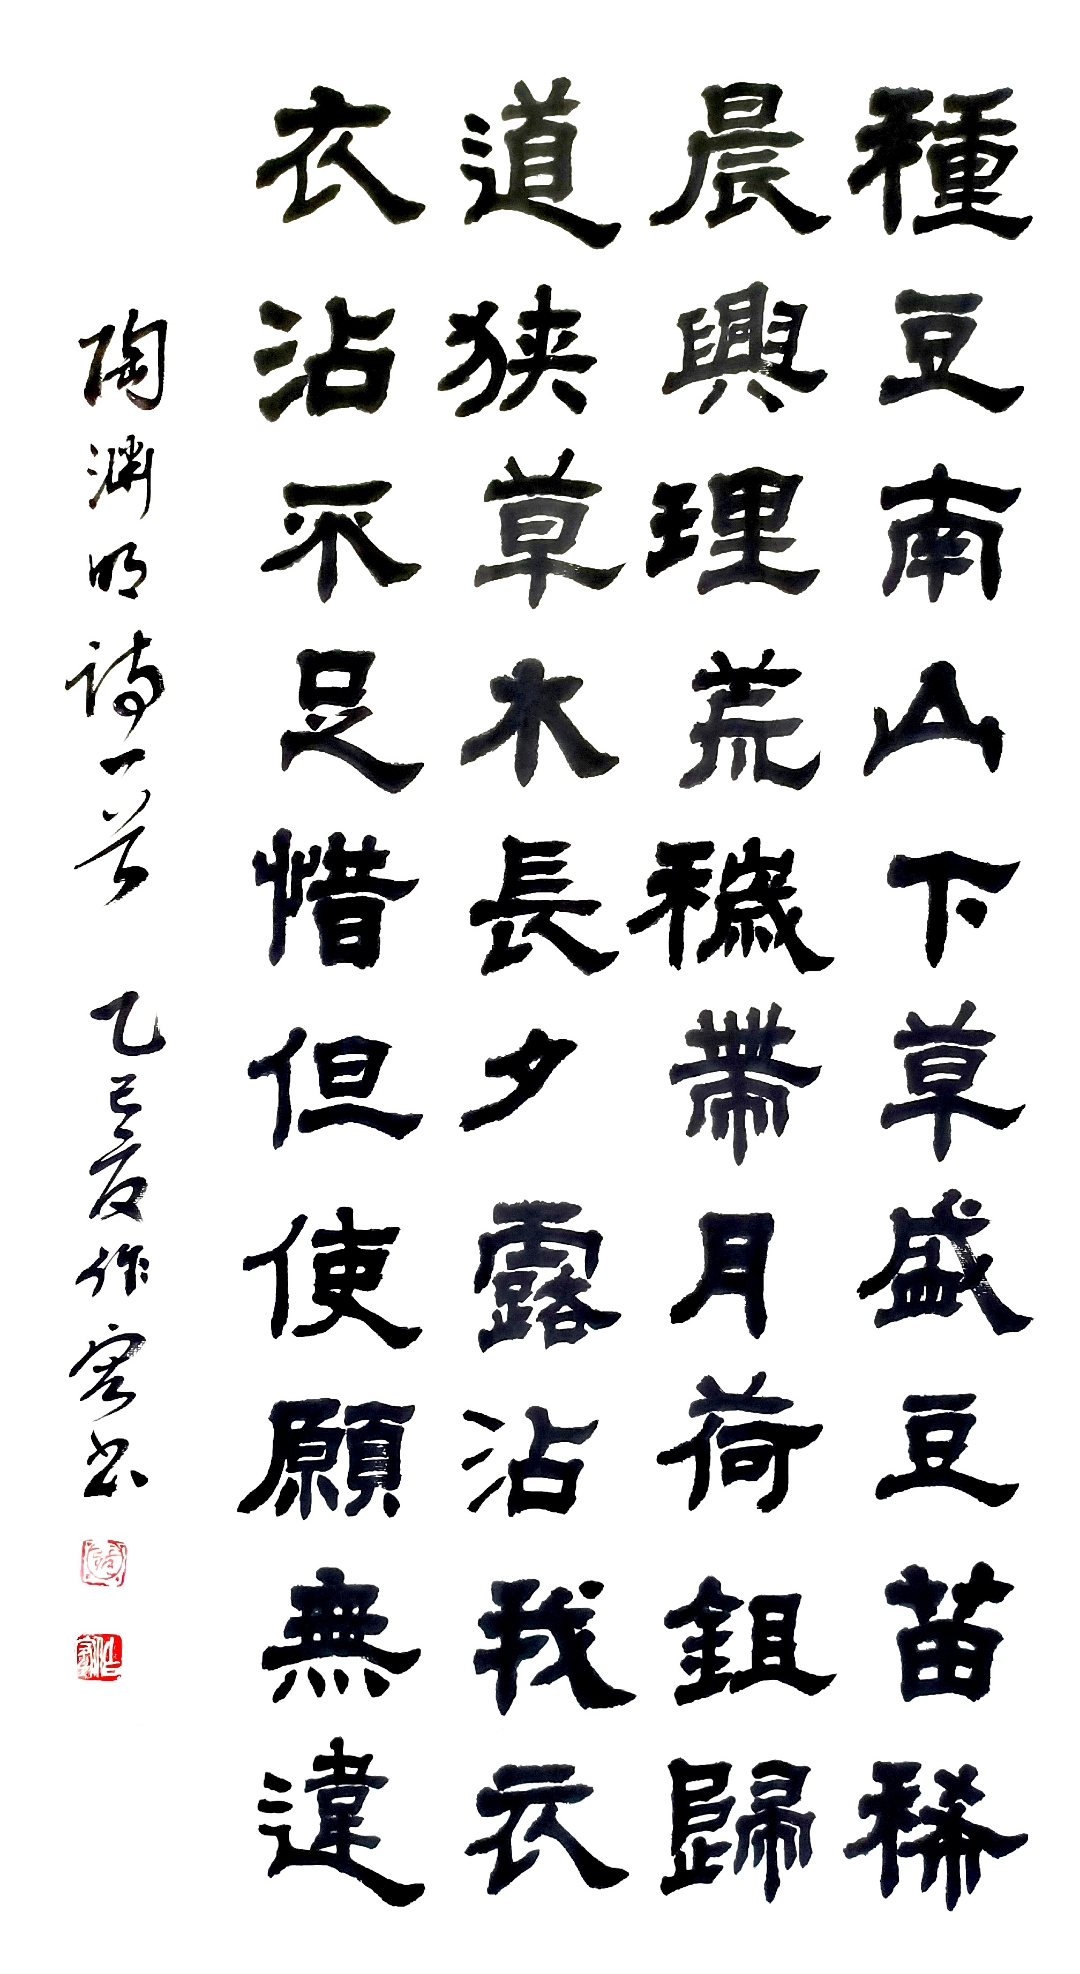 種豆南山下草盛豆苗稀
晨興理荒穢帶月荷鉏歸
道狭草木長夕露沾我衣
衣沾不足惜但使願無違
陶渊明诗一首 乙巳夏作客书